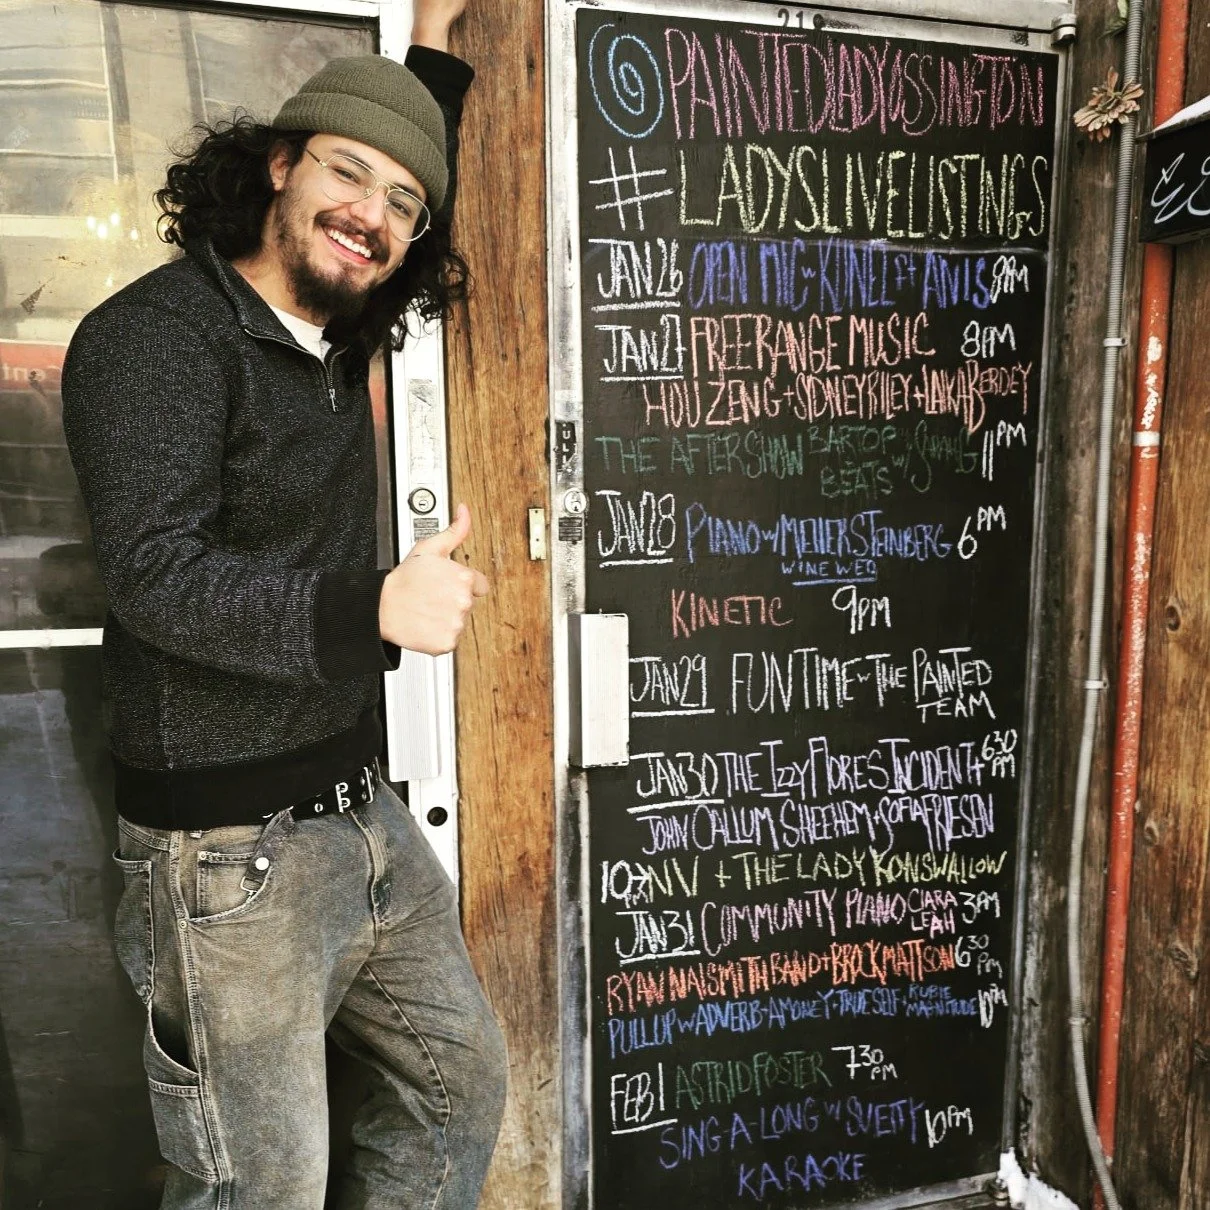 218
@PAINTEDLADYOSSINGTON
#LADYSLIVELISTINGS
JAN 26 OPEN MIC W KUNEL FT ANIS 8PM
JAN 27 FREERANGE MUSIC 8PM
HOU ZENG + SIDNEY RILEY + LAIKA BERDEY
THE AFTERSHOW BARTOP BEATS W/ 11PM
JAN 28 PIANO W/ MEIIER STEINBERG 6PM
WINE WED
KINETIC 9PM
JAN 29 FUN TIME W THE PAINTED
TEAM
JAN 30 THE IZZY FLORES INCIDENT + 630 PM
JOHN CALLUM SHEEHEM + SOFIA FRIESEN
10PM NV + THE LADY KONSWALLOW
JAN 31 COMMUNITY PIANO CIARA LEAH 3PM
RYAN NAISMITH BAND + BROCK MATTSON 630 PM
PULL UP W ADVERB + AMONEY + TRUE SELF + RUBIE MAGNITUDE 10PM
FEB 1 ASTRID FOSTER 730 PM
SING-A-LONG W SUETTY 10PM
KARAOKE